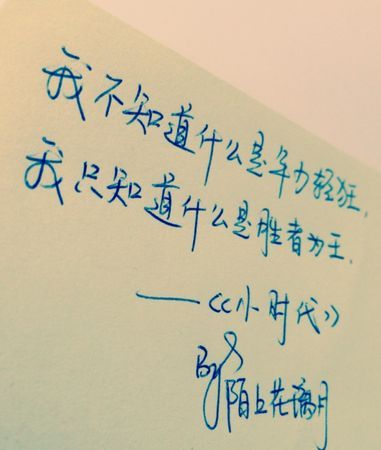 我不知道什么是年少轻狂,
我只知道什么是胜者为王.
——《小时代》
By 陌上花璃月